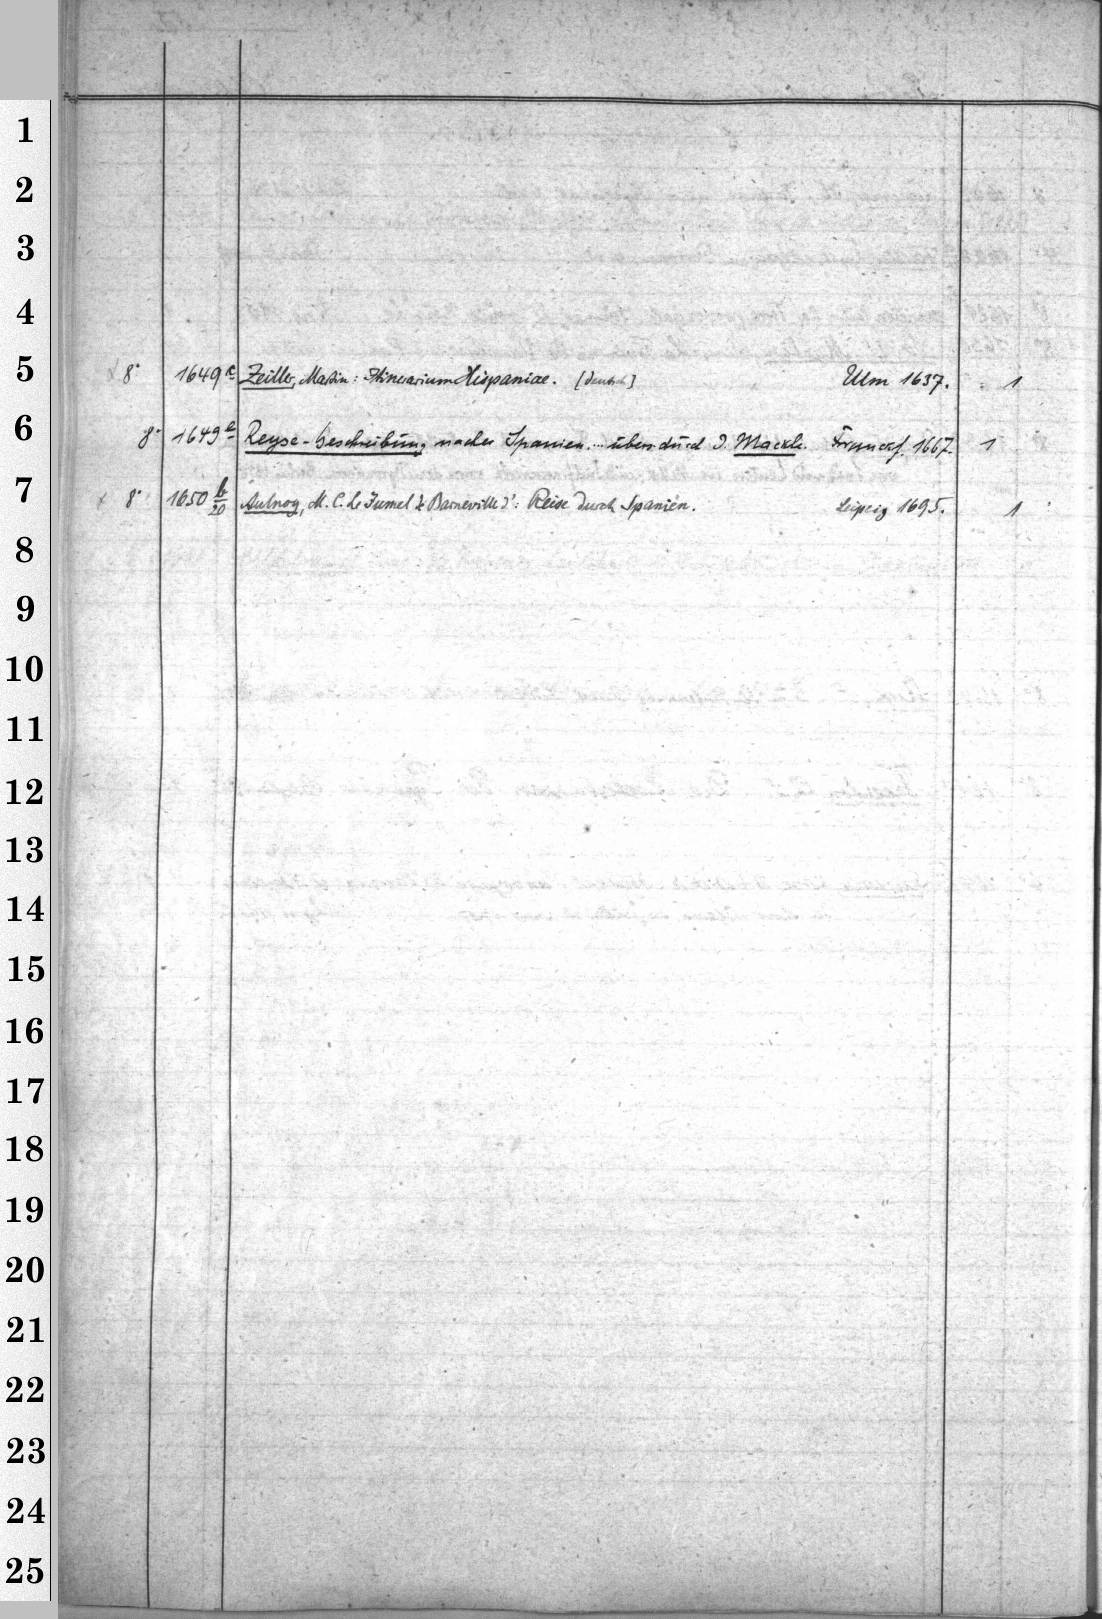 1
2
3
4
5 x 8° 1649 a Zeiller, Martin: Itinerarium Hispaniae. [deutsch] Ulm 1637. 1
6 8° 1649 e Reyse-beschreibung nacher Spanien... übers. durch J. Mackle. Franckf. 1667. 1
7 x 8° 1650 b/20 Aulnoy, M. C. Le Jumel de Barneville d': Reise durch Spanien. Leipzig 1695. 1
8
9
10
11
12
13
14
15
16
17
18
19
20
21
22
23
24
25